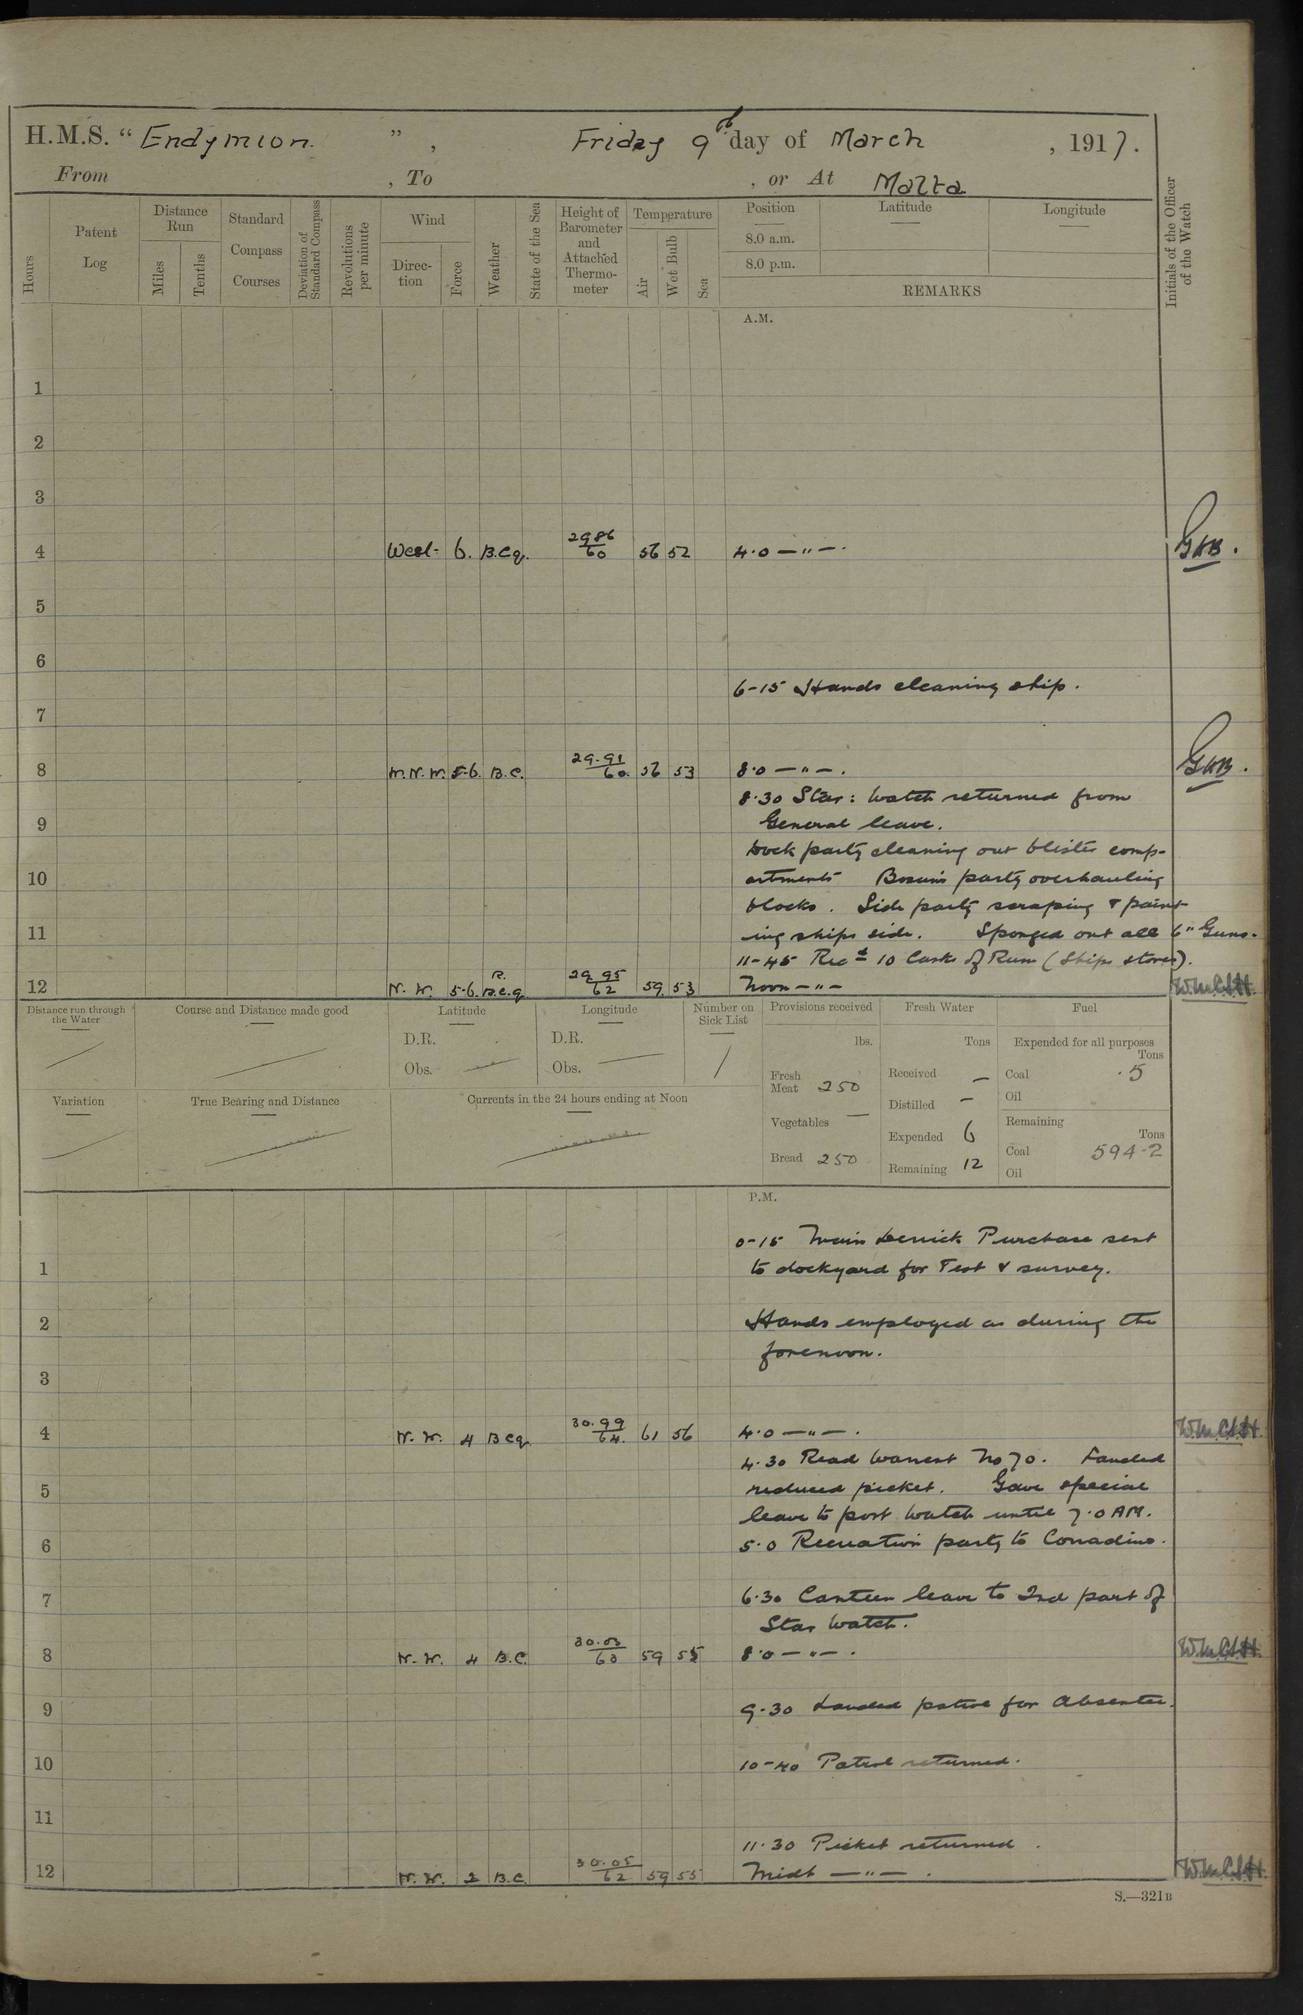 H.M.S. “ Endymion. ” , Friday 9th day of March , 1917.
From , To , or At Malta
Hours
Patent Log
Distance Run
Miles
Tenths
Standard Compass Courses
Deviation of Standard Compass
Revolutions per minute
Wind
Direc-tion
Force
Weather
State of the Sea
Height of Barometer and Attached Thermo-meter
Temperature
Air
Wet Bulb
Sea
Position
8.0 a.m.
8.0 p.m.
Latitude
Longitude
REMARKS
Initials of the Officer of the Watch
A.M.
1
2
3
4 West- 6. B.C.q. 29.86/60 56 52 4.0 — " — . GHB.
5
6
6-15 Hands cleaning ship.
7
8 W.N.W. 5-6. B.C. 29.91/60. 56 53 8.0 — " — . GHB.
8.30 Star: Watch returned from
9 General leave.
Dock party cleaning out blister comp-
10 artments Bosun's party overhauling
blocks. Side party scraping & paint-
11 ing ships side. Sponged out all 6" Guns.
11-45 Recd 10 Casks of Rum (Ships stores).
12 N.W. 5-6. R. B.C.q 29.95/62 59 53 Noon — " —
Distance run through the Water
Course and Distance made good
Latitude
D.R.
Obs.
Longitude
D.R.
Obs.
Number on Sick List
Provisions received
lbs.
Fresh Meat 250
Vegetables —
Bread 250
Fresh Water
Tons
Received —
Distilled —
Expended 6
Remaining 12
Fuel
Expended for all purposes
Tons
Coal .5
Oil
Remaining
Tons
Coal 594.2
Oil
Variation
True Bearing and Distance
Currents in the 24 hours ending at Noon
P.M.
0-15 Main Derrick Purchase sent
1 to dockyard for Test & survey.
2 Hands employed as during the
forenoon.
3
4 N.W. 4 B C q. 30.99/64. 61 56 4.0 — " — .
4.30 Read Warrant No 70. Landed
5 reduced picket. Gave special
leave to port watch until 7.0 AM.
6 5.0 Recreation party to Corradino.
7 6.30 Canteen leave to 2nd part of
Star Watch.
8 N.W. 4 B.C. 30.03/63 59 55 8.0 — " — .
9 9.30 Landed patrol for Absentee.
10 10-40 Patrol returned.
11
11.30 Picket returned .
12 N.W. 2 B.C. 30.05/62 59 55 Midt — " — .
S.—321B